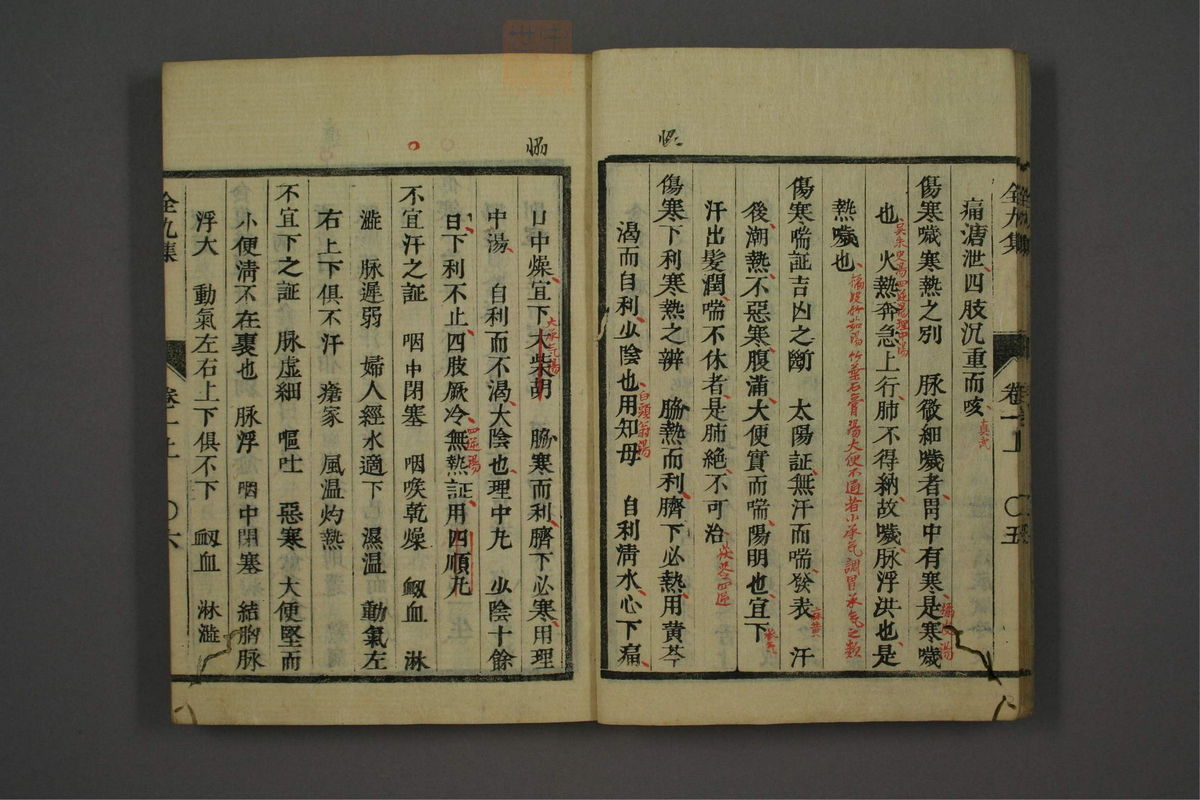 全九集 卷一上 〇五
痛溏泄四肢沉重而咳 真武
傷寒噦寒熱之別 脉微細噦者胃中有寒是寒噦 橘皮湯
也 火熱奔急上行肺不得納故噦脉浮洪也是
吳朱臾湯四逆湯理中湯
熱噦也 橘皮竹茹湯竹葉石膏湯大便不通者小承气調胃承气之類
傷寒喘証吉凶之斷 太陽証無汗而喘發表 汗 麻黄
後潮熱不惡寒腹滿大便實而喘陽明也宜下 承气
汗出髮潤喘不休者是肺絶不可治
傷寒下利寒熱之辨 膓熱而利臍下必熱用黄芩
渴而自利少陰也用知母 自利清水心下痛
白頭翁湯
口中燥宜下大柴胡 膓寒而利臍下必寒用理
大承气湯
中湯 自利而不渴大陰也理中九 少陰十餘
日下利不止四肢厥冷無熱証用四順九
四逆湯
不宜汗之証 咽中閉塞 咽喉乾燥 衂血 淋
澁 脉遲弱 婦人經水適下 濕温 動氣左
右上下俱不汗 瘡家 風温灼熱
不宜下之証 脉虚細 嘔吐 惡寒 大便堅而
小便清不在裏也 脉浮 咽中閉塞 結胸脉
浮大 動氣左右上下俱不下 衂血 淋澁
全九集 卷一上 〇六